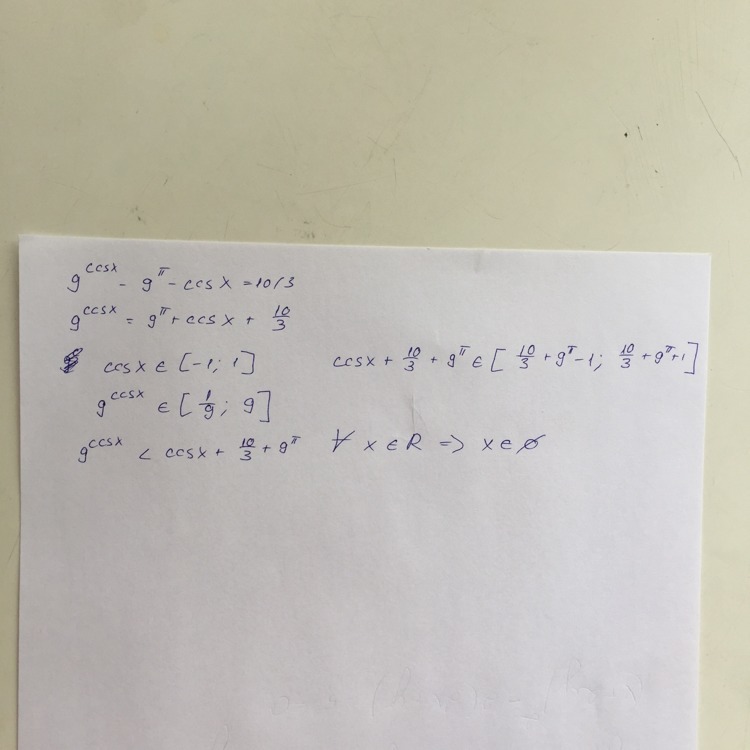 9^cosx - 9^π - cosx = 10/3
9^cosx = 9^π + cosx + 10/3
cosx ∈ [-1; 1] cosx + 10/3 + 9^π ∈ [10/3 + 9^π - 1; 10/3 + 9^π + 1]
9^cosx ∈ [1/9; 9]
9^cosx < cosx + 10/3 + 9^π ∀ x ∈ R => x ∈ ∅